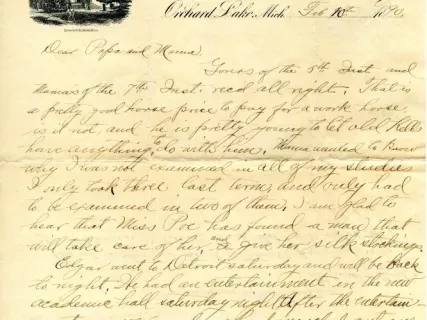 Orchard Lake, Mich. Feb 10th 1890.
Dear Papa and Mama
Yours of the 5th Inst. and
Mamas of the 7th Inst. recd all right. That is
a pretty good horse price to pay for a work horse
is it not, and he is pretty young to let old
have anything to do with him. Mama wanted to know
why I was not examined in all of my studies
I only took three last term, and only had
to be examined in two of them. I am glad to
hear that Miss Poe has found a man that
will take care of her, and to give her silk stockings.
Edgar went to Detroit saturday and will be back
to night. We had an entertainment in the new
academic hall saturday night. After the entertain-